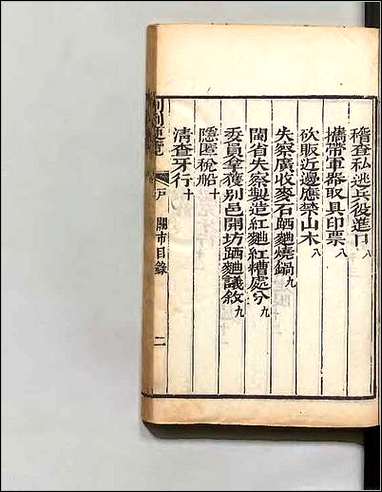 稽查私逃兵役進口八
攜帶軍器取具印票八
砍販近邊應禁山木八
失察廣收麥石晒麯燒鍋九
閩省失察製造紅麯紅糟處分九
委員拿獲別邑開坊晒麯議敘九
隱匿稅船十
清查牙行十
則例便覽 戶 關市目錄 二